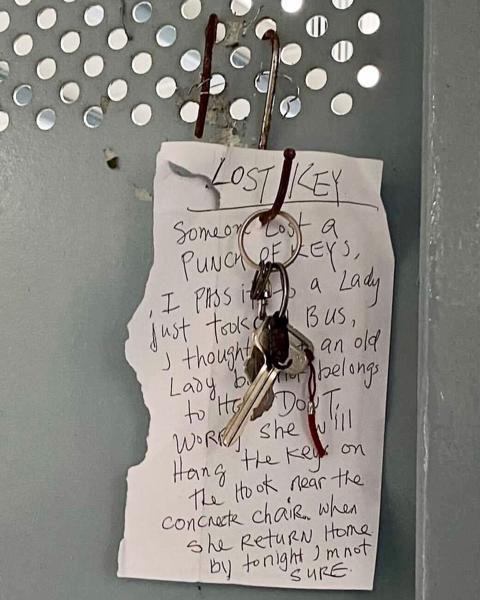 LOST KEY
Someone Lost a
PUNCH OF KEYS,
I PASS it to a Lady
just took BUS,
I thought an old
Lady belongs
to DON'T
WORRY she will
Hang the Keys on
the Hook near the
concrete chair. when
she RETURN Home
by tonight I'm not
SURE.